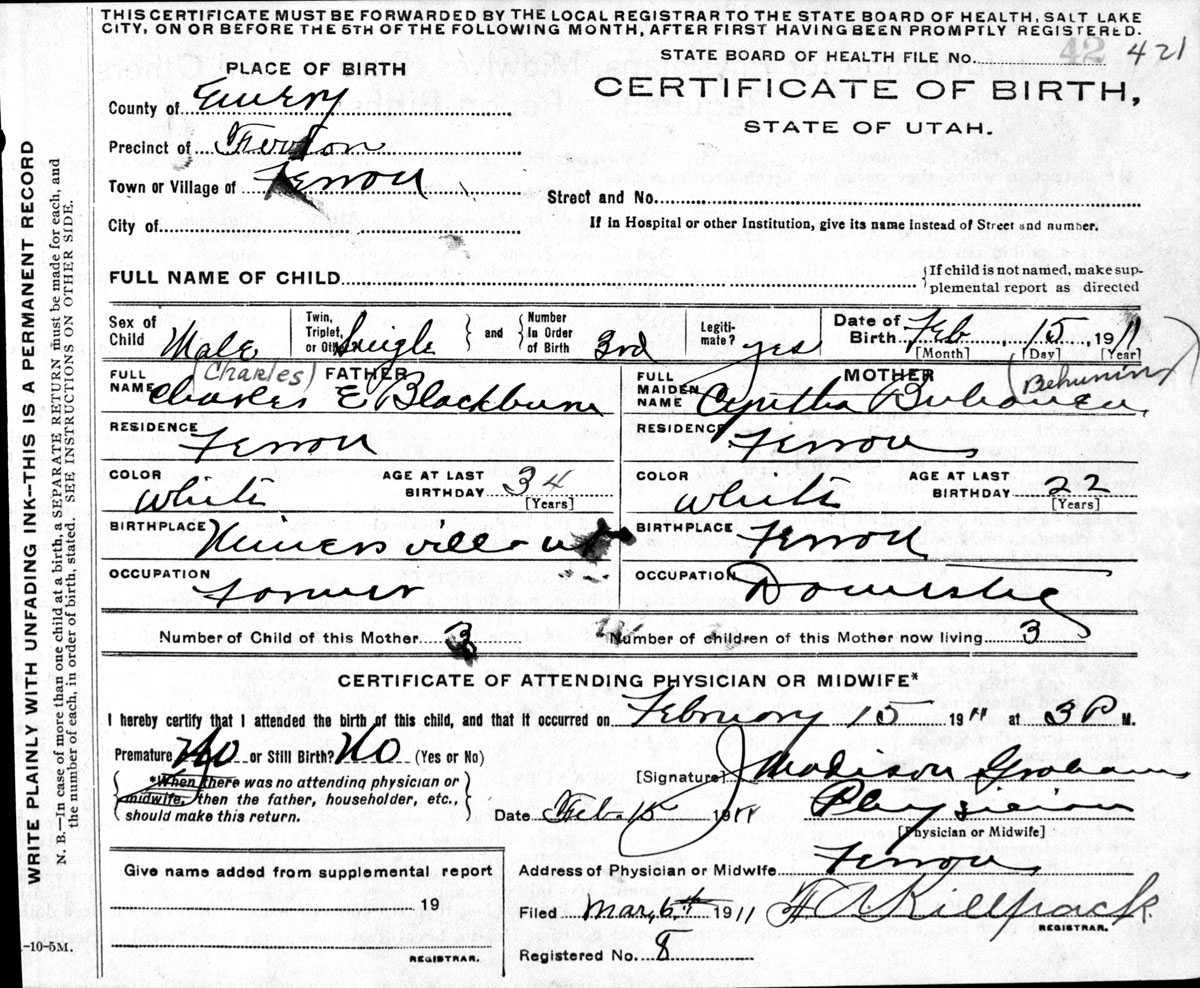 THIS CERTIFICATE MUST BE FORWARDED BY THE LOCAL REGISTRAR TO THE STATE BOARD OF HEALTH, SALT LAKE
CITY, ON OR BEFORE THE 5TH OF THE FOLLOWING MONTH, AFTER FIRST HAVING BEEN PROMPTLY REGISTERED.
STATE BOARD OF HEALTH FILE NO. 42 421
PLACE OF BIRTH
CERTIFICATE OF BIRTH,
STATE OF UTAH.
County of Emery
Precinct of Ferron
Town or Village of Ferron
Street and No.
City of
If in Hospital or other Institution, give its name instead of Street and number.
FULL NAME OF CHILD
If child is not named, make sup-
plemental report as directed
Sex of Child Male
Twin, Triplet, or Other Single and Number In Order of Birth 3rd
Legiti-mate? yes
Date of Birth Feb, 15, 1911
[Month] [Day] [Year]
FATHER
FULL NAME (Charles) Charles E Blackburn
RESIDENCE Ferron
COLOR White
AGE AT LAST BIRTHDAY 34 [Years]
BIRTHPLACE
OCCUPATION Farmer
MOTHER
FULL MAIDEN NAME Cyntha (Behunin)
RESIDENCE Ferron
COLOR White
AGE AT LAST BIRTHDAY 22 [Years]
BIRTHPLACE Ferron
OCCUPATION Domestic
Number of Child of this Mother 3
Number of children of this Mother now living 3
CERTIFICATE OF ATTENDING PHYSICIAN OR MIDWIFE*
I hereby certify that I attended the birth of this child, and that it occurred on February 15 1911 at 3 P M.
Premature No or Still Birth? No (Yes or No)
*When there was no attending physician or
midwife, then the father, householder, etc.,
should make this return.
[Signature] J Madison Graham
Date Feb 15 1911
Physician
[Physician or Midwife]
Address of Physician or Midwife Ferron
Filed Mar, 6th 1911
Killpack
REGISTRAR.
Registered No. 8
Give name added from supplemental report
19
REGISTRAR.
WRITE PLAINLY WITH UNFADING INK—THIS IS A PERMANENT RECORD
N. B.—In case of more than one child at a birth, a SEPARATE RETURN must be made for each, and
the number of each, in order of birth, stated. SEE INSTRUCTIONS ON OTHER SIDE.
-10-5M.